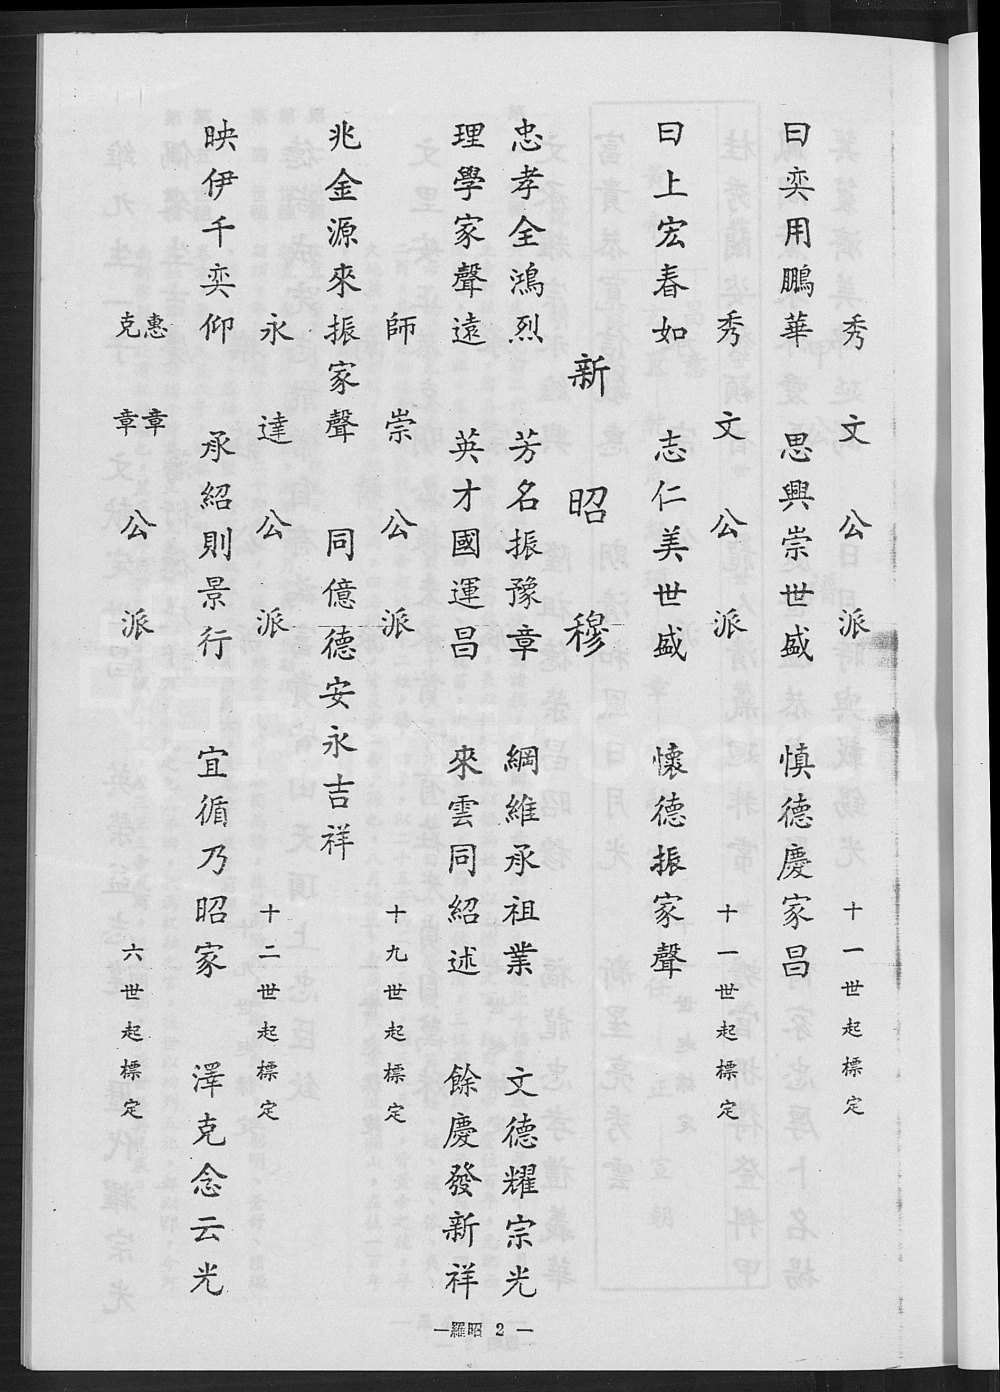 秀文公派 十一世起標定
曰奕用鵬華 思興崇世盛 慎德慶家昌
秀文公派 十一世起標定
曰上宏春如 志仁美世盛 懷德振家聲
新昭穆
忠孝全鴻烈 芳名振豫章 綱維承祖業 文德耀宗光
理學家聲遠 英才國運昌 來雲同紹述 餘慶發新祥
師崇公派 十九世起標定
兆金源來振家聲 同億德安永吉祥
永達公派 十二世起標定
映伊千奕仰 承紹則景行 宜循乃昭家 澤克念云光
惠章
克章
公派 六世起標定
—羅昭 2 —